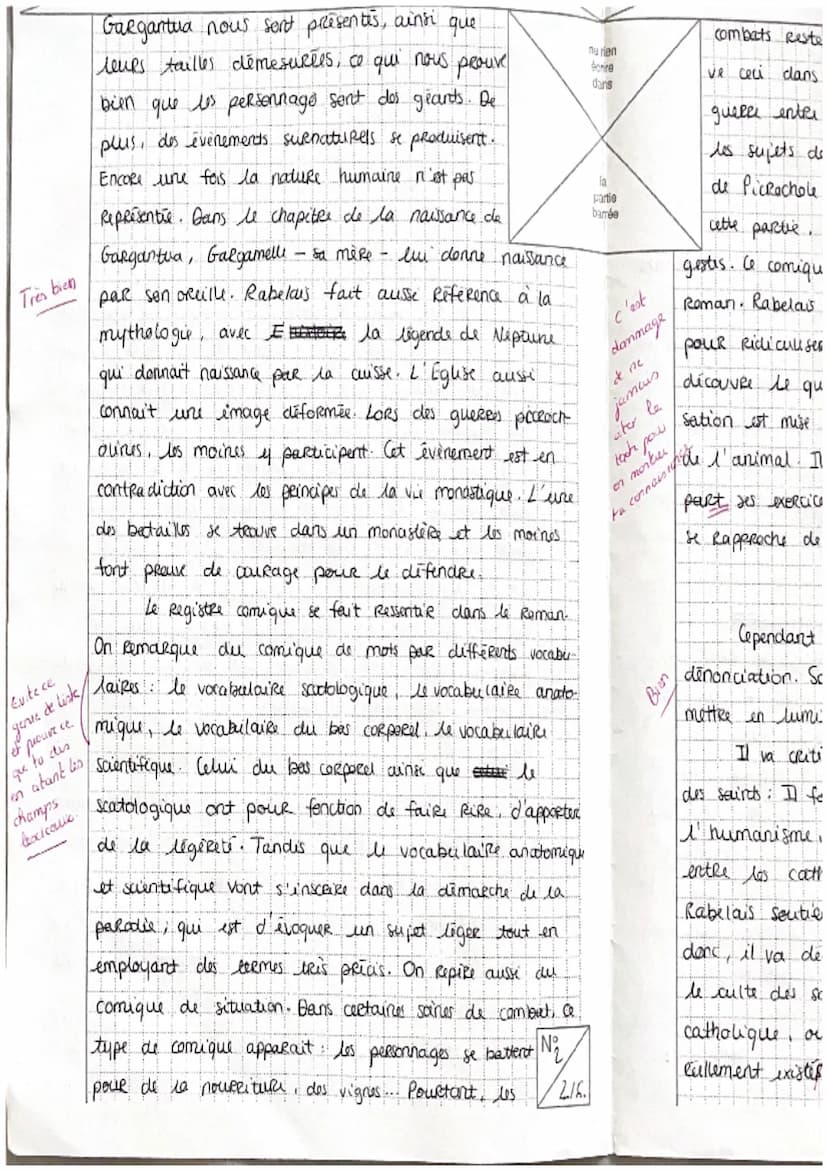 Gargantua nous sont présentés, ainsi que
leurs tailles démesurées, ce qui nous prouve
bien que les personnage sont des géants. De
plus, des évènements surnaturels se produisent.
Encore une fois la nature humaine n'est pas
représentée. Dans le chapitre de la naissance de
Gargantua, Gargamelle - sa mère - lui donne naissance
par son oreille. Rabelais fait aussi référence à la
mythologie, avec la légende de Neptune
qui donnait naissance par la cuisse. L'Église aussi
connait une image déformée. Lors des guerres picroch-
olines, les moines y participent. Cet évènement est en
contradiction avec les principes de la vie monastique. L'une
des batailles se trouve dans un monastère et les moines
font preuve de courage pour le défendre.
Le registre comique se fait ressentir dans le roman.
On remarque du comique de mots par différents vocabu-
laires : le vocabulaire scatologique, le vocabulaire anato-
mique, le vocabulaire du bas corporel, le vocabulaire
scientifique. Celui du bas corporel ainsi que le
scatologique ont pour fonction de faire rire, d'apporter
de la légèreté. Tandis que le vocabulaire anatomique
et scientifique vont s'inscrire dans la démarche de la
parodie, qui est d'évoquer un sujet léger tout en
employant des termes très précis. On repère aussi du
comique de situation. Dans certaines scènes de combat, ce
type de comique apparait : les personnages se battent
pour de la nourriture, des vignes... Pourtant, les
N° 2
2/6.
Très bien
Evite ce
genre de liste
et prouve ce
que tu dis
en citant les
champs
lexicaux.
ne rien
écrire
dans
la
partie
barrée
C'est
dommage
de ne
jamais
citer le
texte pour
en montrer
ta connaissance
Bien
combats reste
ve ceci dans
guerre entre
les sujets de
de Picrochole
cette partie.
gestes. Le comiqu
roman. Rabelais
pour ridiculiser
découvre le qu
sation est mise
de l'animal. Il
part ses exercic
se rapproche de
Cependant
dénonciation. So
mettre en lumi
Il va criti
des saints : Il fa
l'humanisme,
entre les cath
Rabelais soutie
donc, il va de
le culte des sa
catholique, ou
réellement exist